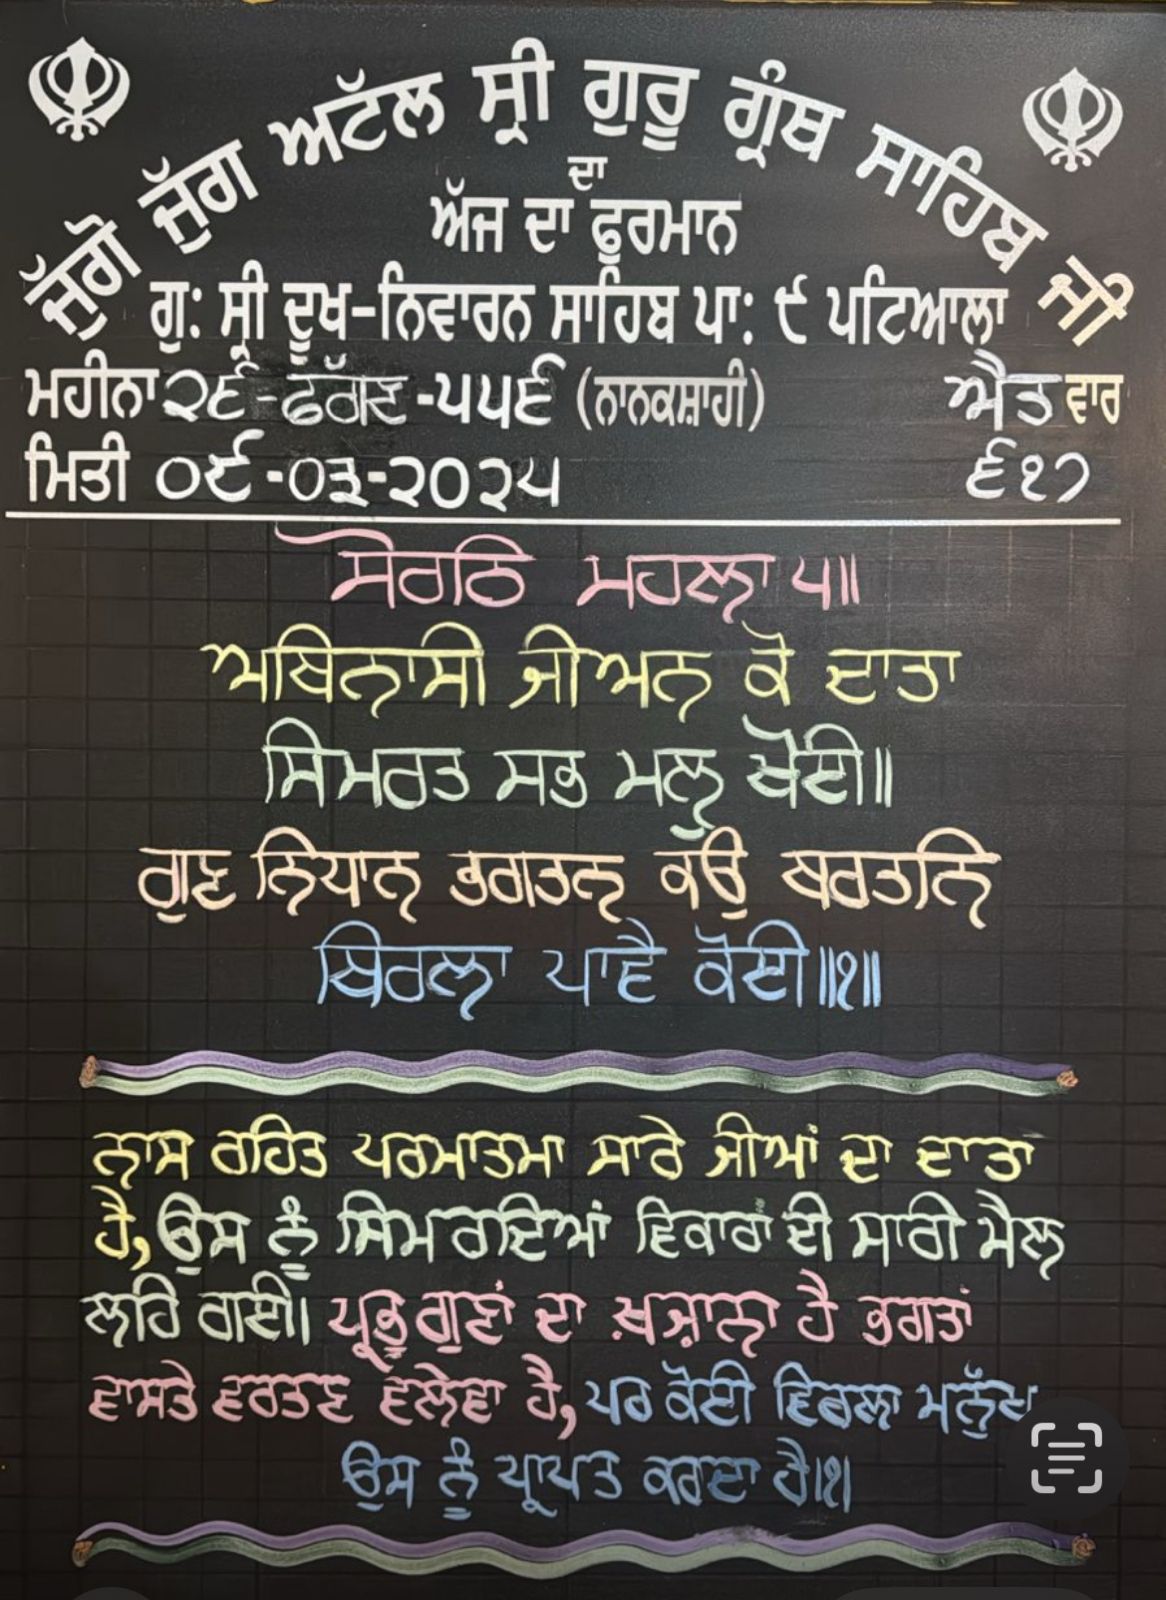 ਜੁੱਗੋ ਜੁੱਗ ਅਟੱਲ ਸ੍ਰੀ ਗੁਰੂ ਗ੍ਰੰਥ ਸਾਹਿਬ ਜੀ
ਦਾ
ਅੱਜ ਦਾ ਫੁਰਮਾਨ
ਗੁ: ਸ੍ਰੀ ਦੂਖ-ਨਿਵਾਰਨ ਸਾਹਿਬ ਪਾ: ੯ ਪਟਿਆਲਾ
ਮਹੀਨਾ ੨੬-ਫੱਗਣ-੫੫੬ (ਨਾਨਕਸ਼ਾਹੀ) ਐਤਵਾਰ
ਮਿਤੀ ੦੯-੦੩-੨੦੨੫ ੬੧੭
ਸੋਰਠਿ ਮਹਲਾ ੫॥
ਅਬਿਨਾਸੀ ਜੀਅਨ ਕੋ ਦਾਤਾ
ਸਿਮਰਤ ਸਭ ਮਲੁ ਖੋਈ॥
ਗੁਣ ਨਿਧਾਨ ਭਗਤਨ ਕਉ ਬਰਤਨਿ
ਬਿਰਲਾ ਪਾਵੈ ਕੋਈ॥੧॥
ਨਾਸ ਰਹਿਤ ਪਰਮਾਤਮਾ ਸਾਰੇ ਜੀਆਂ ਦਾ ਦਾਤਾ
ਹੈ, ਉਸ ਨੂੰ ਸਿਮਰਦਿਆਂ ਵਿਕਾਰਾਂ ਦੀ ਸਾਰੀ ਮੈਲ
ਲਹਿ ਗਈ। ਪ੍ਰਭੂ ਗੁਣਾਂ ਦਾ ਖ਼ਜ਼ਾਨਾ ਹੈ ਭਗਤਾਂ
ਵਾਸਤੇ ਵਰਤਣ ਵਲੇਵਾ ਹੈ, ਪਰ ਕੋਈ ਵਿਰਲਾ ਮਨੁੱਖ
ਉਸ ਨੂੰ ਪ੍ਰਾਪਤ ਕਰਦਾ ਹੈ।੧।